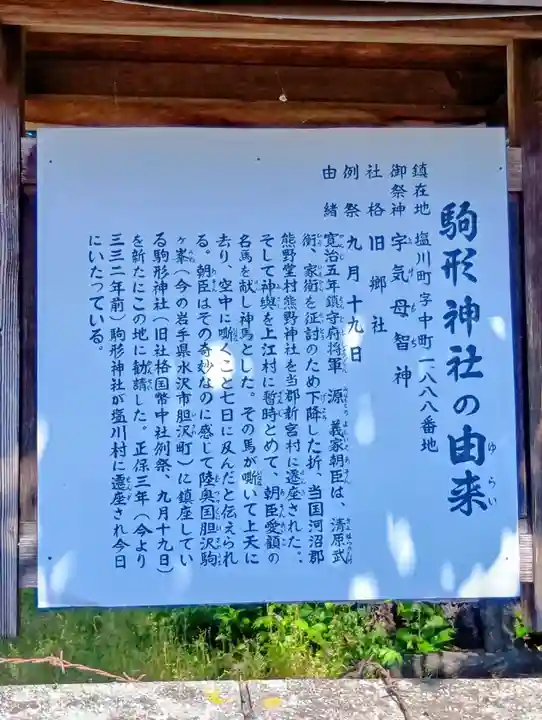 駒形神社の由来
鎮在地　塩川町字中町一八八八番地
御祭神　宇気母智神
社格　旧郷社
例祭　九月十九日
由緒　寛治五年鎮守府将軍　源　義家朝臣は、清原武
衡、家衡を征討のため下降した折、当国河沼郡
熊野堂村熊野神社を当郡新宮村に遷座された。
そして神輿を上江村に暫時とめて、朝臣愛顧の
名馬を献し神馬とした。その馬が嘶いて上天に
去り、空中に嘶くこと七日に及んだと伝えられ
る。朝臣はその奇妙なのに感じて陸奥国胆沢駒
ヶ峯（今の岩手県水沢市胆沢町）に鎮座してい
る駒形神社（旧社格国幣中社例祭、九月十九日）
を新たにこの地に勧請した。正保三年（今より
三三二年前）駒形神社が塩川村に遷座され今日
にいたっている。